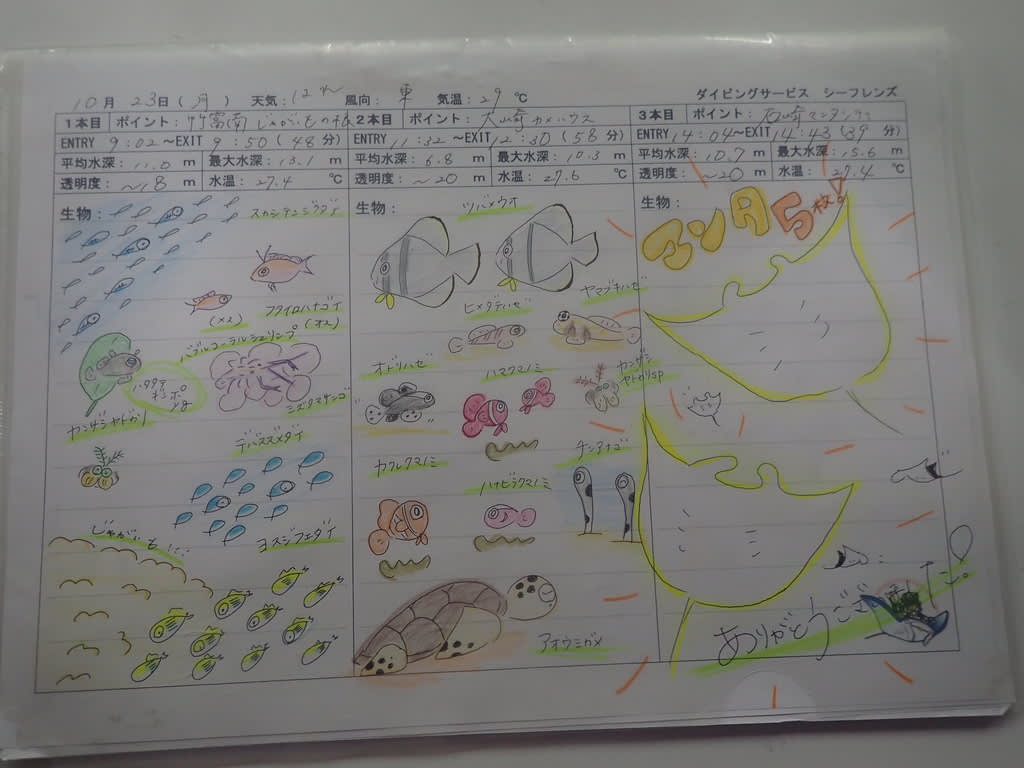 10月 23日(月) 天気: 風向: 東 気温: 29 ℃ ダイビングサービス シーフレンズ
1本目 ポイント: 竹富南 じゃがいも
ENTRY 9:02 ~EXIT 9:50 (48分)
平均水深: 11.0 m 最大水深: 13.1 m
透明度: ~18 m 水温: 27.4 ℃
生物:
スカシテンジクダイ
フタイロハナゴイ
(メス) (オス)
バブルコーラルシュリンプ
ミズタマサンゴ
ヤンザシヤドカリ
デバスズメダイ
じゃがいも
ヨスジフエダイ
2本目 ポイント: 大崎 カメハウス
ENTRY 11:32 ~EXIT 12:30 (58分)
平均水深: 6.8 m 最大水深: 10.3 m
透明度: ~20 m 水温: 27.6 ℃
生物:
ツバメウオ
ヒメダテハゼ
ヤマブキハゼ
オドリハゼ
ハマクマノミ
カンザシ
ヤドカリsp
カクレクマノミ
ハナビラクマノミ
チンアナゴ
アオウミガメ
3本目 ポイント: 石崎 マンタ
ENTRY 14:04 ~EXIT 14:43 (39分)
平均水深: 10.7 m 最大水深: 15.6 m
透明度: ~20 m 水温: 27.4 ℃
生物:
マンタ5枚!
ありがとうござ